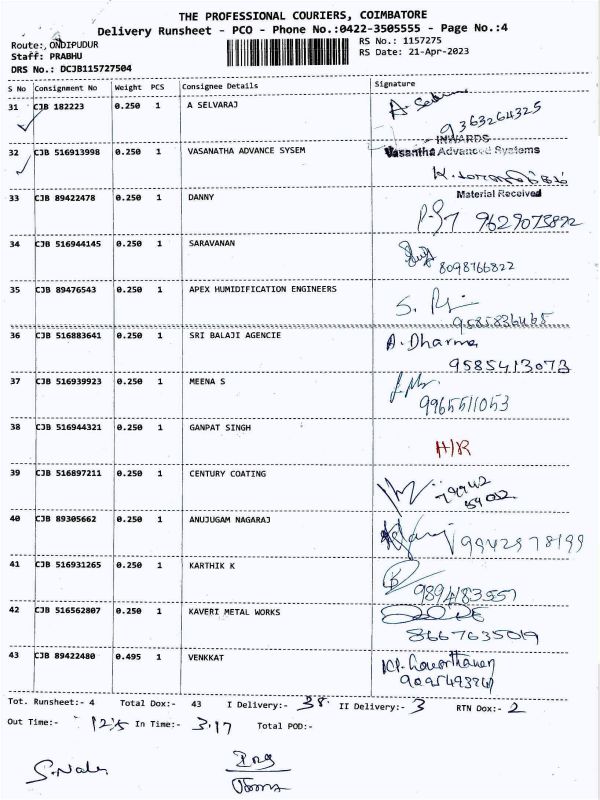 THE PROFESSIONAL COURIERS, COIMBATORE
Delivery Runsheet - PCO - Phone No.:0422-3505555 - Page No.:4
Route:, ONDIPUDUR RS No.: 1157275
Staff: PRABHU RS Date: 21-Apr-2023
DRS No.: DCJB115727504
S No Consignment No Weight PCS Consignee Details Signature
31 CJB 182223 0.250 1 A SELVARAJ
9363264325
INWARDS
32 CJB 516913998 0.250 1 VASANATHA ADVANCE SYSEM Vasantha Advanced Systems
Material Received
33 CJB 89422478 0.250 1 DANNY
9629073892
34 CJB 516944145 0.250 1 SARAVANAN
8098766822
35 CJB 89476543 0.250 1 APEX HUMIDIFICATION ENGINEERS
9585836465
36 CJB 516883641 0.250 1 SRI BALAJI AGENCIE A. Dharma
9585413073
37 CJB 516939923 0.250 1 MEENA S
9965511053
38 CJB 516944321 0.250 1 GANPAT SINGH
H/R
39 CJB 516897211 0.250 1 CENTURY COATING
79942
59032
40 CJB 89305662 0.250 1 ANUJUGAM NAGARAJ
9942978199
41 CJB 516931265 0.250 1 KARTHIK K
9894183557
42 CJB 516562807 0.250 1 KAVERI METAL WORKS
8667635019
43 CJB 89422480 0.495 1 VENKKAT
Tot. Runsheet:- 4 Total Dox:- 43 I Delivery:- 38 II Delivery:- 3 RTN Dox:- 2
Out Time:- In Time:- 3.17 Total POD:-